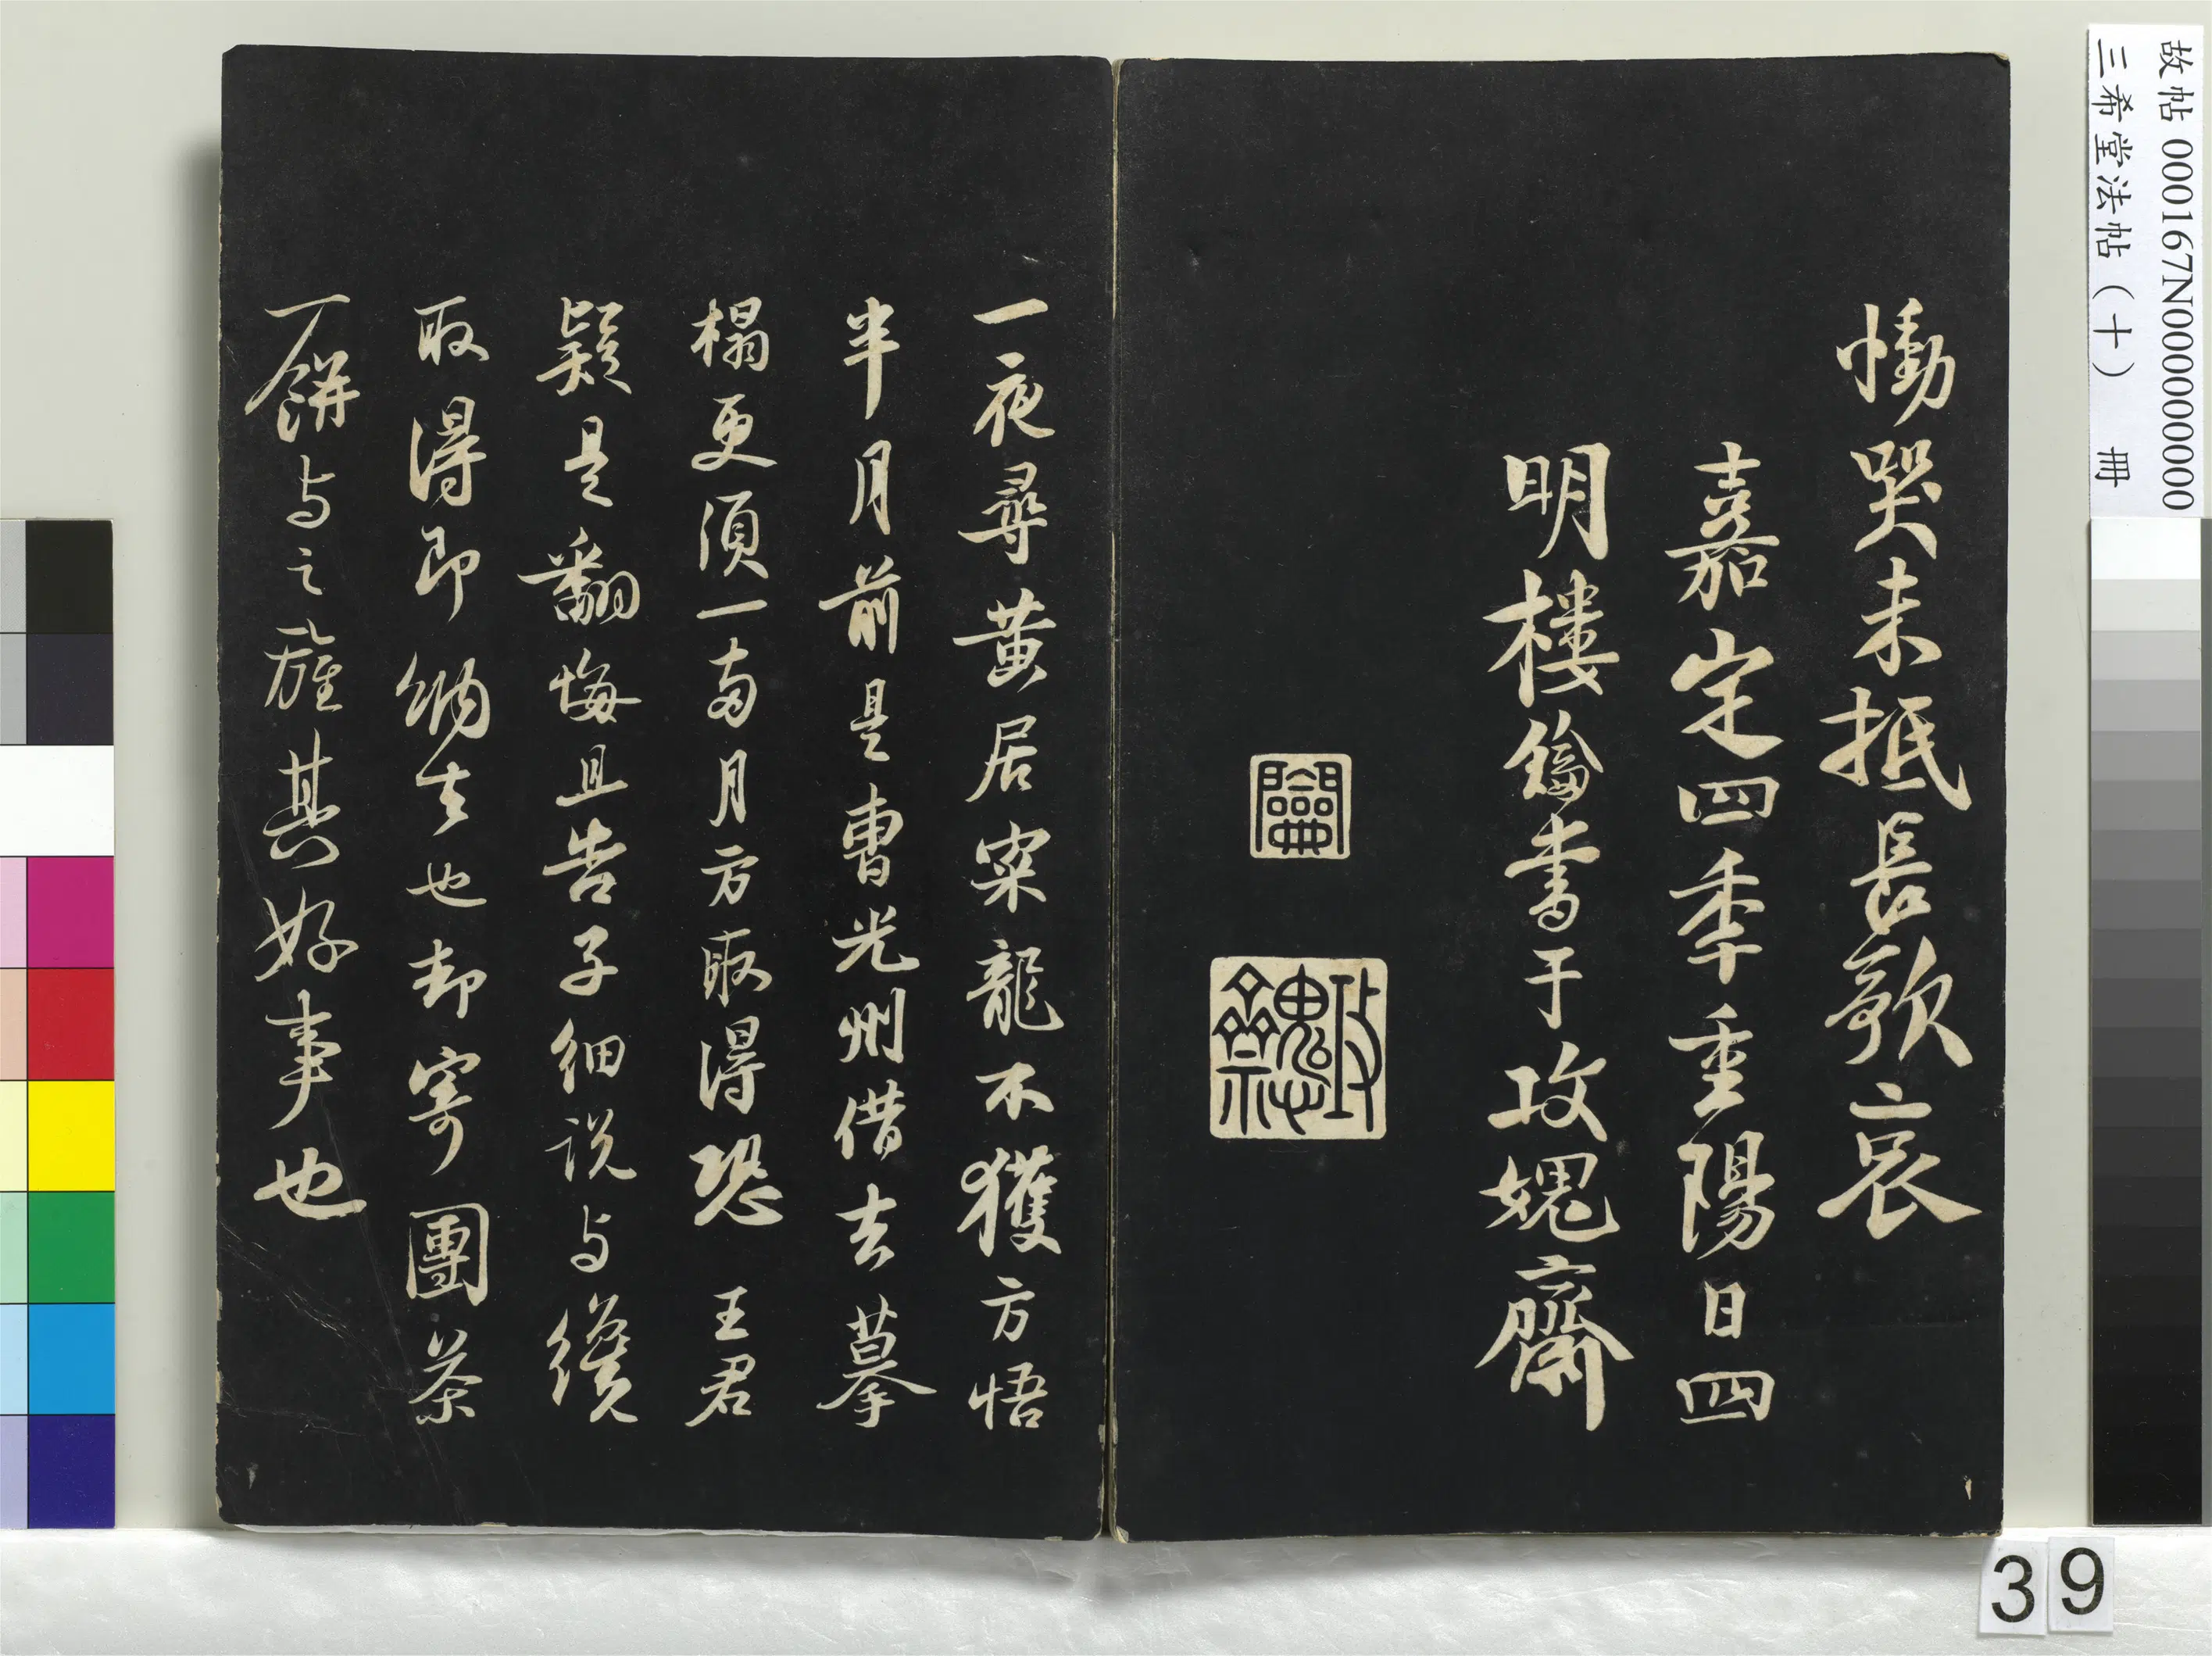 慟哭未抵長歌哀
嘉定四季重陽日四
明樓鑰書于攻媿齋
攻媿齋
一夜尋黃居寀龍不獲方悟
半月前是曹光州借去摹
榻更須一兩月方取得恐 王君
疑是翻悔且告子細說与纔
取得即納去也却寄團茶
一餅与之旌其好事也
故帖 000167N000000000
三希堂法帖（十） 冊
39